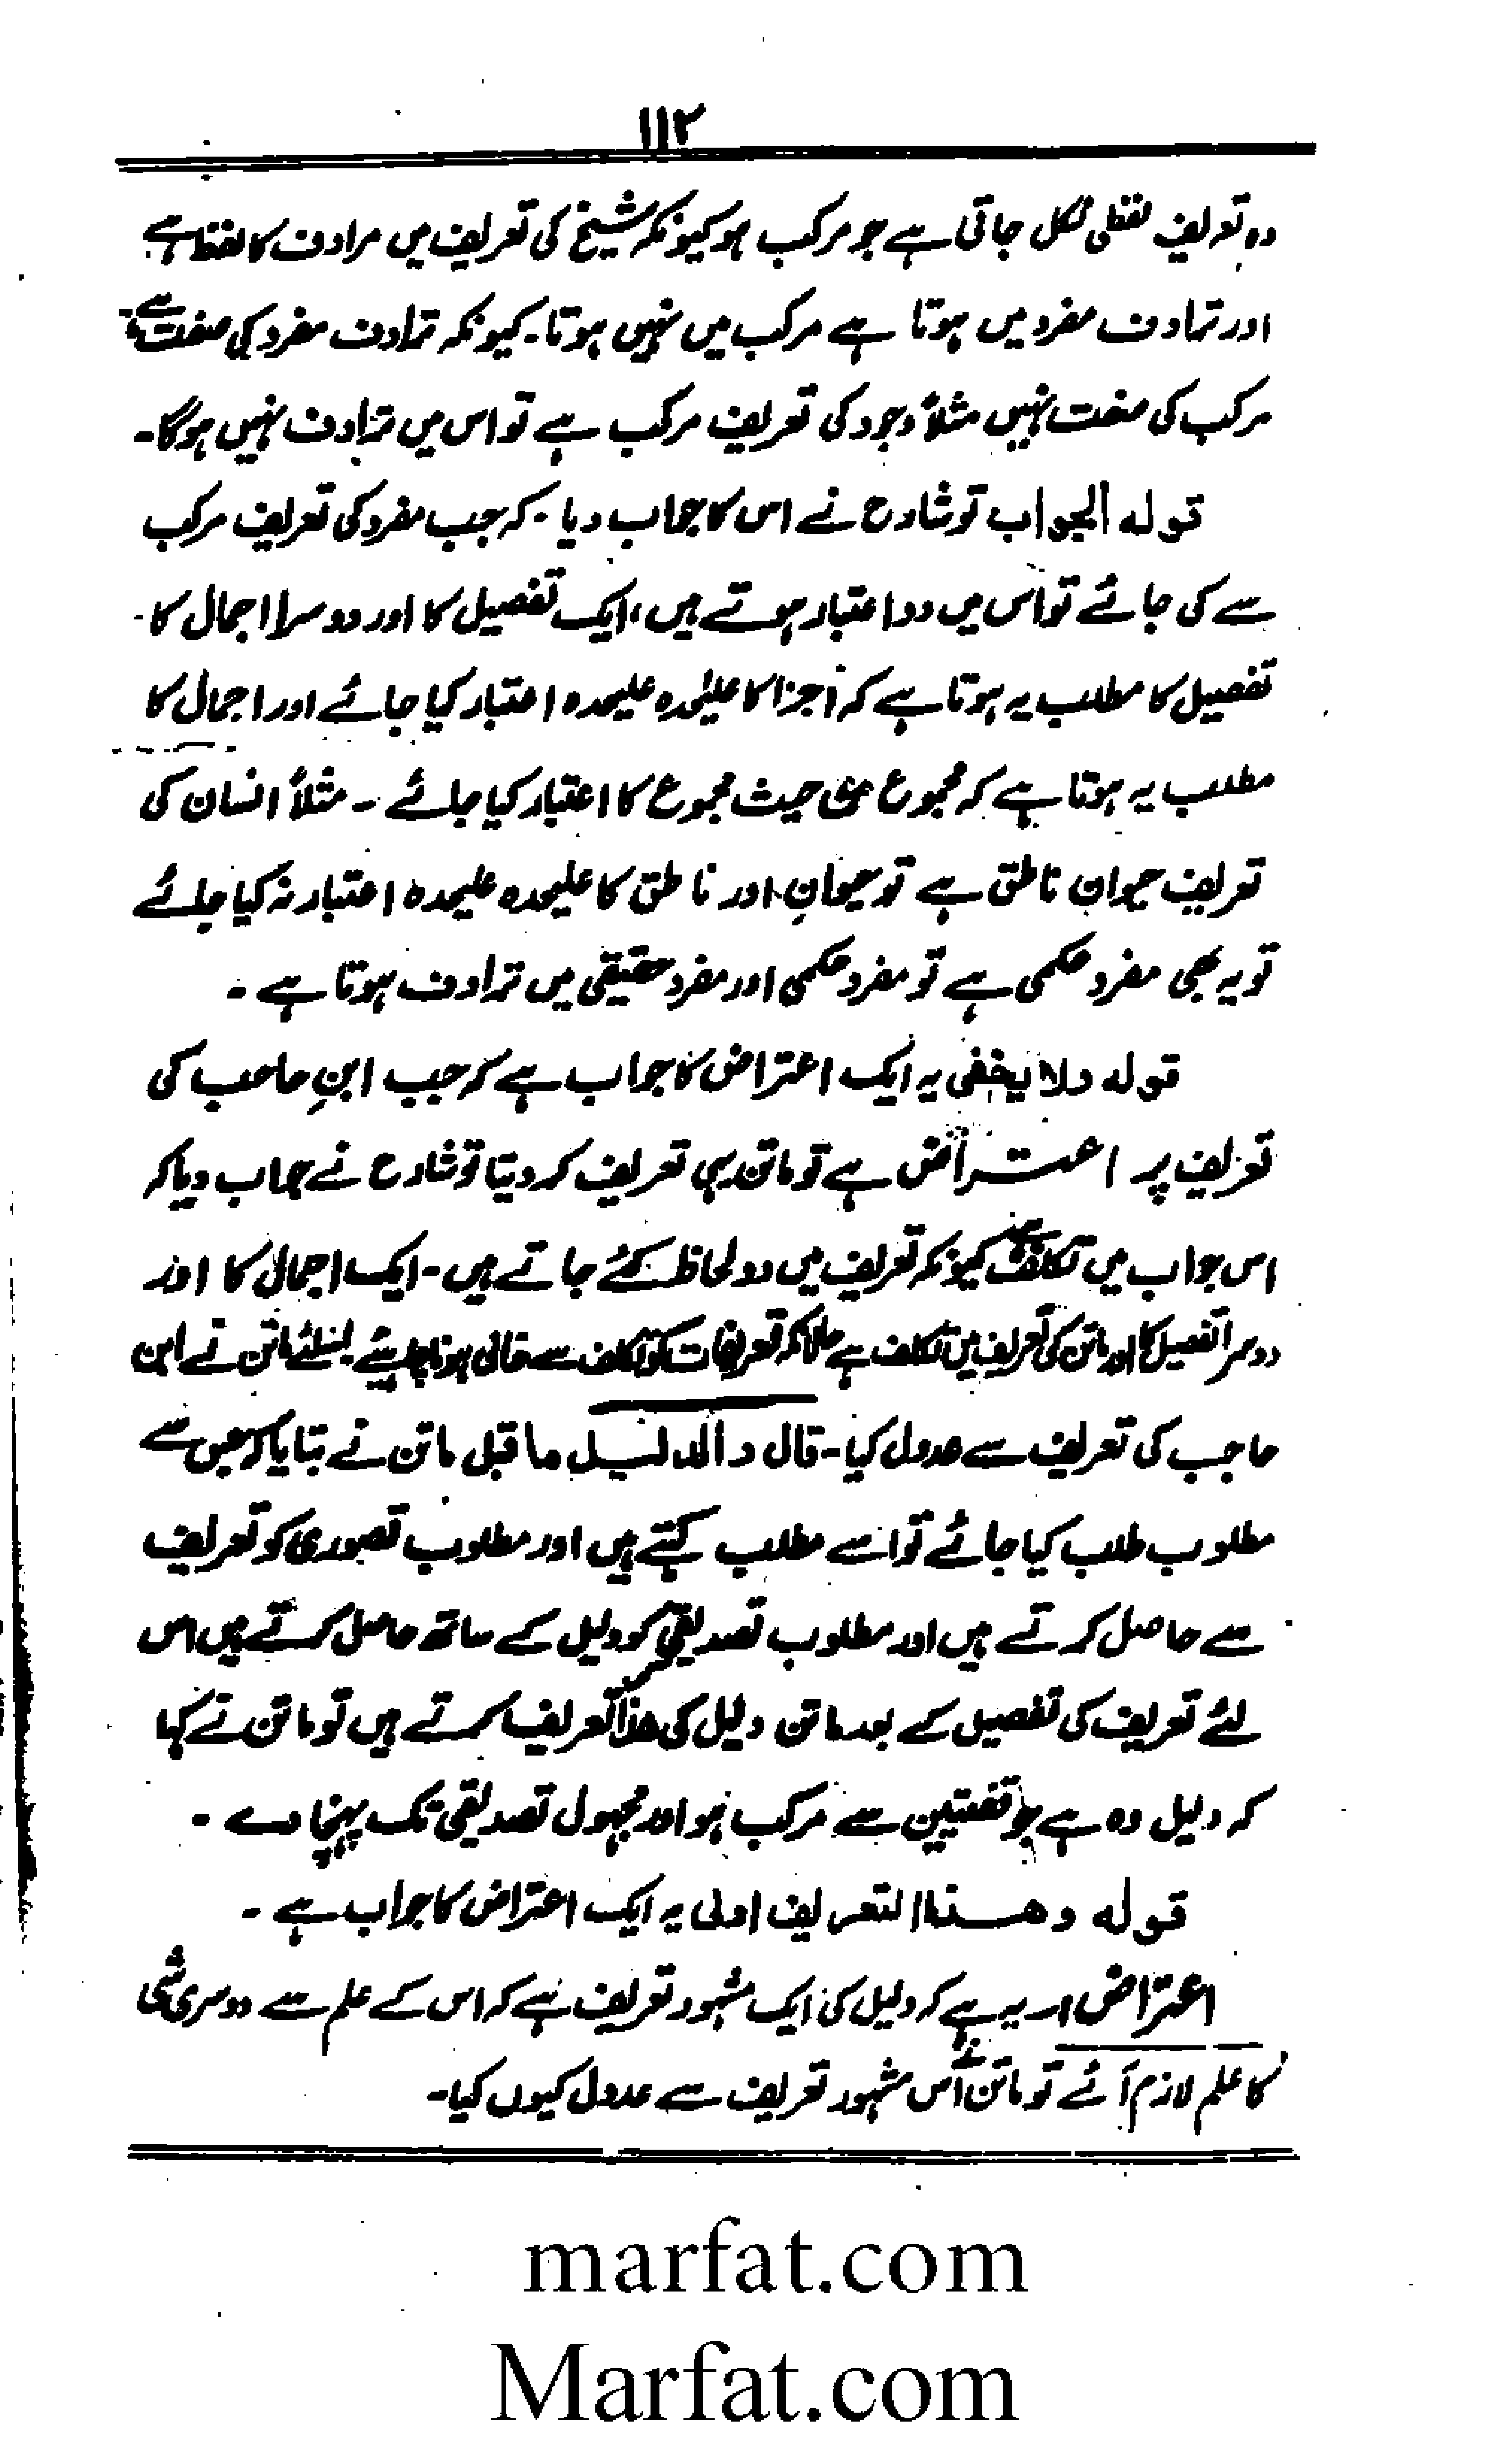 ۱۱۲
وہ تعریف لفظی نکل جاتی ہے جو مرکب ہو کیونکہ شیخ کی تعریف میں مرادف کا لفظ ہے
اور ترادف مفرد میں ہوتا ہے مرکب میں نہیں ہوتا۔ کیونکہ ترادف مفرد کی صفت ہے
مرکب کی صفت نہیں مثلاً وجود کی تعریف مرکب ہے تو اس میں ترادف نہیں ہوگا۔
قولہ الجواب تو شارح نے اس کا جواب دیا۔ کہ جب مفرد کی تعریف مرکب
سے کی جائے تو اس میں دو اعتبار ہوتے ہیں، ایک تفصیل کا اور دوسرا اجمال کا۔
تفصیل کا مطلب یہ ہوتا ہے کہ اجزا کا علیحدہ علیحدہ اعتبار کیا جائے اور اجمال کا
مطلب یہ ہوتا ہے کہ مجموع من حیث مجموع کا اعتبار کیا جائے ۔ مثلاً انسان کی
تعریف حیوان ناطق ہے تو حیوان اور ناطق کا علیحدہ علیحدہ اعتبار نہ کیا جائے
تو یہ بھی مفرد حکمی ہے تو مفرد حکمی اور مفرد حقیقی میں ترادف ہوتا ہے ۔
قولہ ولا یخفی یہ ایک اعتراض کا جواب ہے کہ جب ابنِ حاجب کی
تعریف پر اعتراض ہے تو ماتن یہی تعریف کر دیتا تو شارح نے جواب دیا کہ
اس جواب میں تکلف ہے کیونکہ تعریف میں دو لحاظ کئے جاتے ہیں۔ ایک اجمال کا اور
دوسرا تفصیل کا اور ماتن کی تعریف میں تکلف ہے حالانکہ تعریفات کو تکلف سے خالی ہونا چاہیئے اسلئے ماتن نے ابن
حاجب کی تعریف سے عدول کیا۔ قال والدلیل ماقبل ماتن نے بتایا کہ جس سے
مطلوب طلب کیا جائے تو اسے مطلب کہتے ہیں اور مطلوب تصوری کو تعریف
سے حاصل کرتے ہیں اور مطلوب تصدیقی کو دلیل کے ساتھ حاصل کرتے ہیں اس
لئے تعریف کی تفصیل کے بعد ماتن دلیل کی تعریف کرتے ہیں تو ماتن نے کہا
کہ دلیل وہ ہے جو قضیتین سے مرکب ہو اور مجہول تصدیقی تک پہنچا دے ۔
قولہ وھذا التعریف اولی یہ ایک اعتراض کا جواب ہے ۔
اعتراض ا۔ یہ ہے کہ دلیل کی ایک مشہور تعریف ہے کہ اس کے علم سے دوسری شی
کا علم لازم آئے تو ماتن نے اس مشہور تعریف سے عدول کیوں کیا۔
marfat.com
Marfat.com